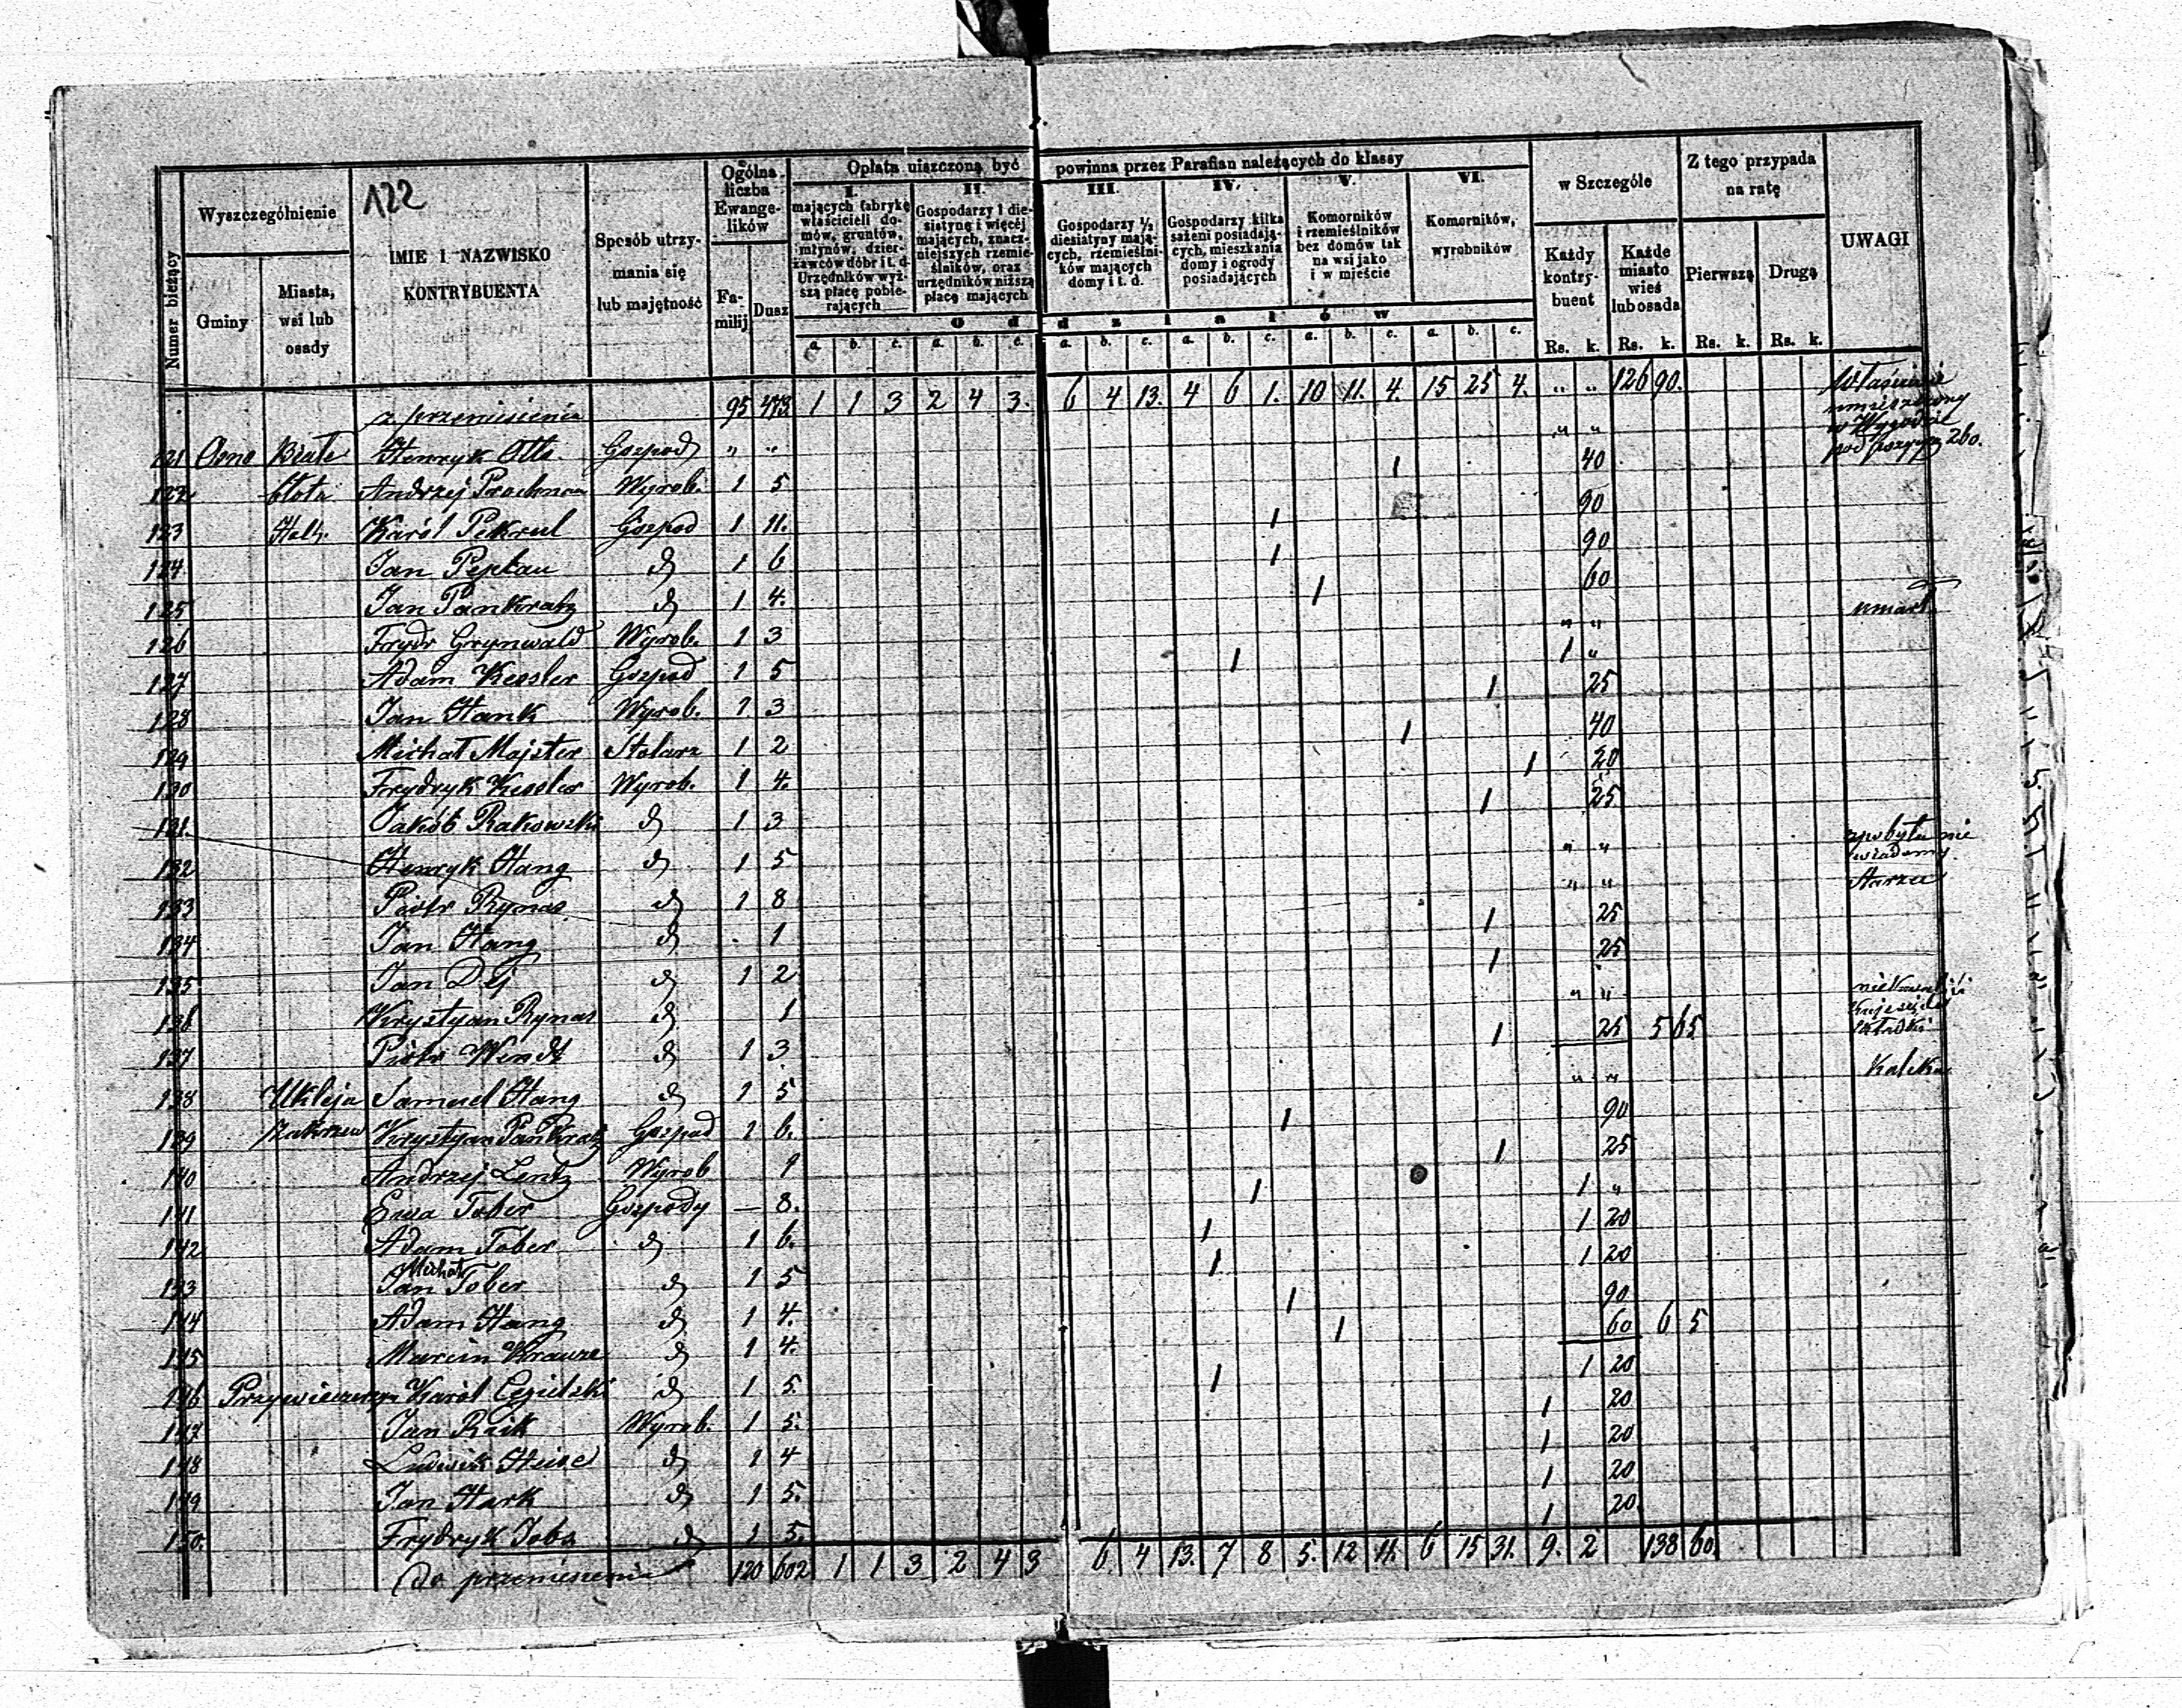 122
Numer bieżący
Wyszczególnienie
Gminy
Miasta, wsi lub osady
IMIE I NAZWISKO KONTRYBUENTA
Sposób utrzymania się lub majętność
Ogólna liczba Ewangelików
Familij Dusz
Opłata uiszczoną być powinna przez Parafian należących do klassy
I. mających fabrykę właścicieli domów, gruntów, młynów, dzierżawców dóbr i t. d. Urzędników wyższą płacę pobierających
II. Gospodarzy 1 diesiatynę i więcej mających, znaczniejszych rzemieślników, oraz urzędników niższą płacę mających
III. Gospodarzy ½ diesiatyny mających, rzemieślników mających domy i t. d.
IV. Gospodarzy kilka sażeni posiadających, mieszkania domy i ogrody posiadających
V. Komorników i rzemieślników bez domów tak na wsi jako i w mieście
VI. Komorników, wyrobników
O d d z i a ł ó w
a. b. c. a. b. c. a. b. c. a. b. c. a. b. c. a. b. c.
w Szczególe
Każdy kontrybuent Rs. k.
Każde miasto wieś lub osada Rs. k.
Z tego przypada na ratę
Pierwszą Rs. k.
Drugą Rs. k.
UWAGI
z przeniesienia 95 473 1 1 3 2 4 3. 6 4 13. 4 6 1. 10 11. 4. 15 25 4. " " 126 90.
121 Osno Białe Henryk Otto Gospod " " " " Właściwie umieszczony w Wygodzie pod pozycyą 260.
122 błota Andrzej Prochnau Wyrob. 1 5 1 40
123 Hol. Karól Pekrul Gospod 1 11. 1 90
124 Jan Peplau d 1 6 1 90
125 Jan Pankratz d 1 4. 1 60
126 Frydr Grynwald Wyrob. 1 3 " " umarł
127 Adam Kessler Gospod 1 5 1 1 "
128 Jan Hank Wyrob. 1 3 1 25
129 Michał Majster Stolarz 1 2 1 40
130 Frydryk Kessler Wyrob. 1 4. 1 20
131. Jakób Rakowski d 1 3 1 25
132 Henryk Hang d 1 5 " " z pobytu nie wiadomy.
133 Piotr Rynas d 1 8 " " Starzec
134 Jan Hang d . 1 1 25
135. Jan Dej d 1 2 1 25
136 Krystyan Rynas d 1 " "
137 Piotr Wendt d 1 3 1 25 5 65
138 Ukleja Samuel Hang d 1 5 " " Kaleka
139 Zakrzew Krystyan Pankratz Gospod 1 6. 1 90
140 Andrzej Lentz Wyrob 1 1 25
141 Ewa Tober Gospody — 8. 1 1 "
142 Adam Tober d 1 6. 1 1 20
143 Jan Michał Tober d 1 5 1 1 20
144 Adam Hang d 1 4. 1 90
145 Marcin Krauze d 1 4. 1 60 6 5
146 Przywieczerzyn Karól Cegielski d 1 5. 1 1 20
147 Jan Rük Wyrob. 1 5. 1 20
148 Ludwik Heise d 1 4 1 20
149 Jan Hark d 1 5. 1 20
150. Frydryk Jobs d 1 5. 1 20.
Do przeniesienia 120 602 1 1 3 2 4 3 6. 4 13. 7 8 5. 12 11. 6 15 31. 9. 2 138 60